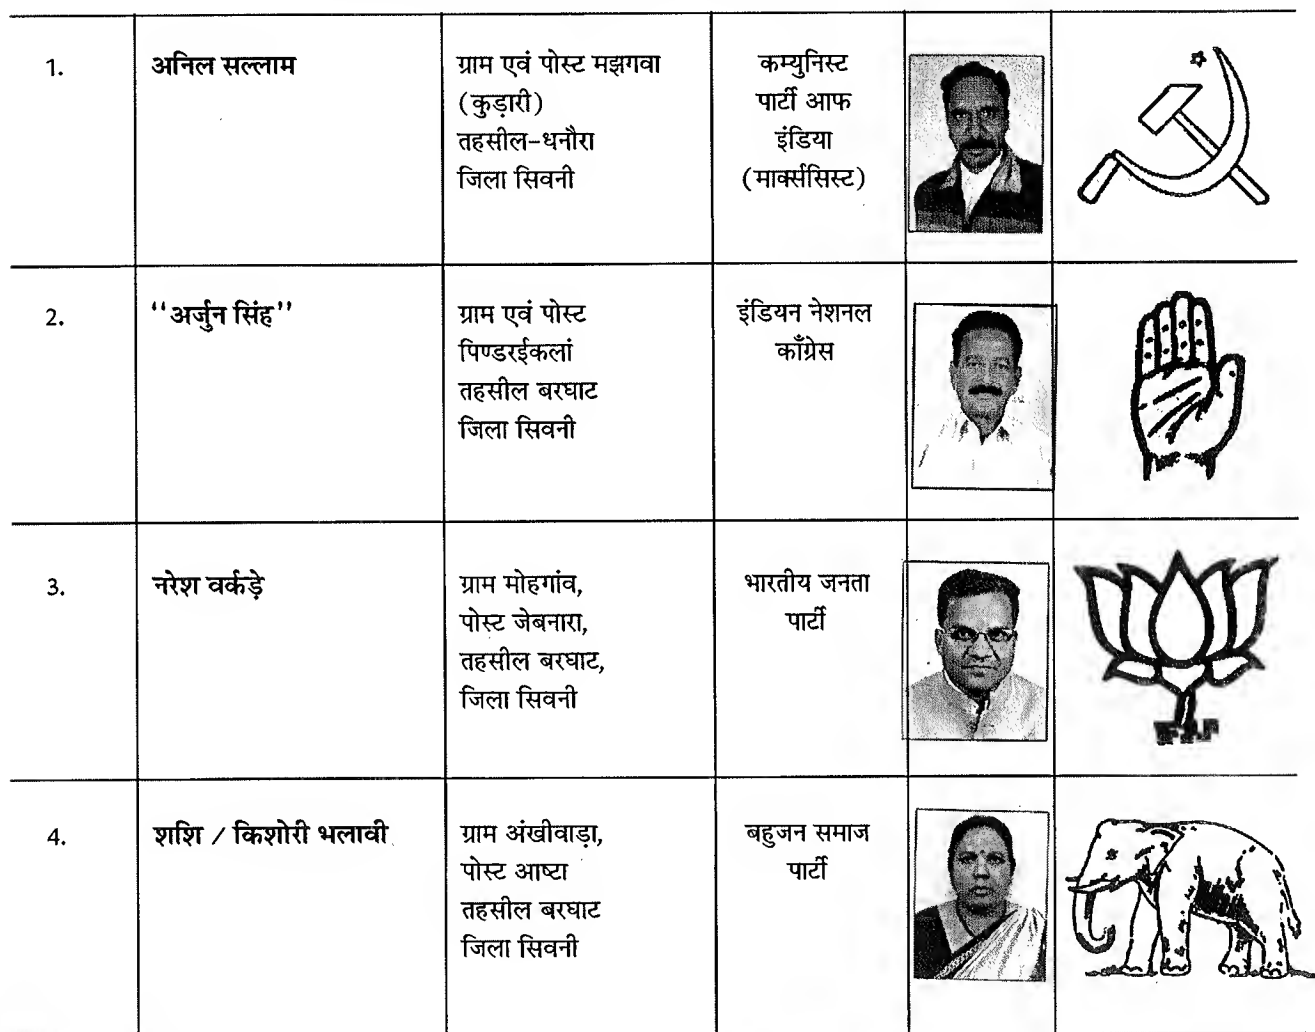 1.
अनिल सल्लाम
ग्राम एवं पोस्ट मझगवा
(कुड़ारी)
तहसील-धनौरा
जिला सिवनी
कम्युनिस्ट
पार्टी आफ
इंडिया
(मार्क्ससिस्ट)
2.
‘‘अर्जुन सिंह’’
ग्राम एवं पोस्ट
पिण्डरईकलां
तहसील बरघाट
जिला सिवनी
इंडियन नेशनल
काँग्रेस
3.
नरेश वर्कड़े
ग्राम मोहगांव,
पोस्ट जेबनारा,
तहसील बरघाट,
जिला सिवनी
भारतीय जनता
पार्टी
4.
शशि / किशोरी भलावी
ग्राम अंखीवाड़ा,
पोस्ट आष्टा
तहसील बरघाट
जिला सिवनी
बहुजन समाज
पार्टी